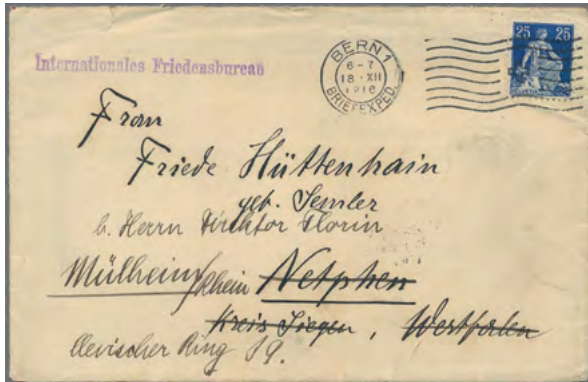 Internationales Friedensbureau
BERN 1
6-7
18·XII
1916
BRIEFEXPED.
25 25
HELVETIA
Frau
Friede Hüttenhain
geb. Semler
b. Herrn Direktor Florin
Mülheim/Rhein Netphen
Kreis Siegen, Westfalen
Clevischer Ring 19.